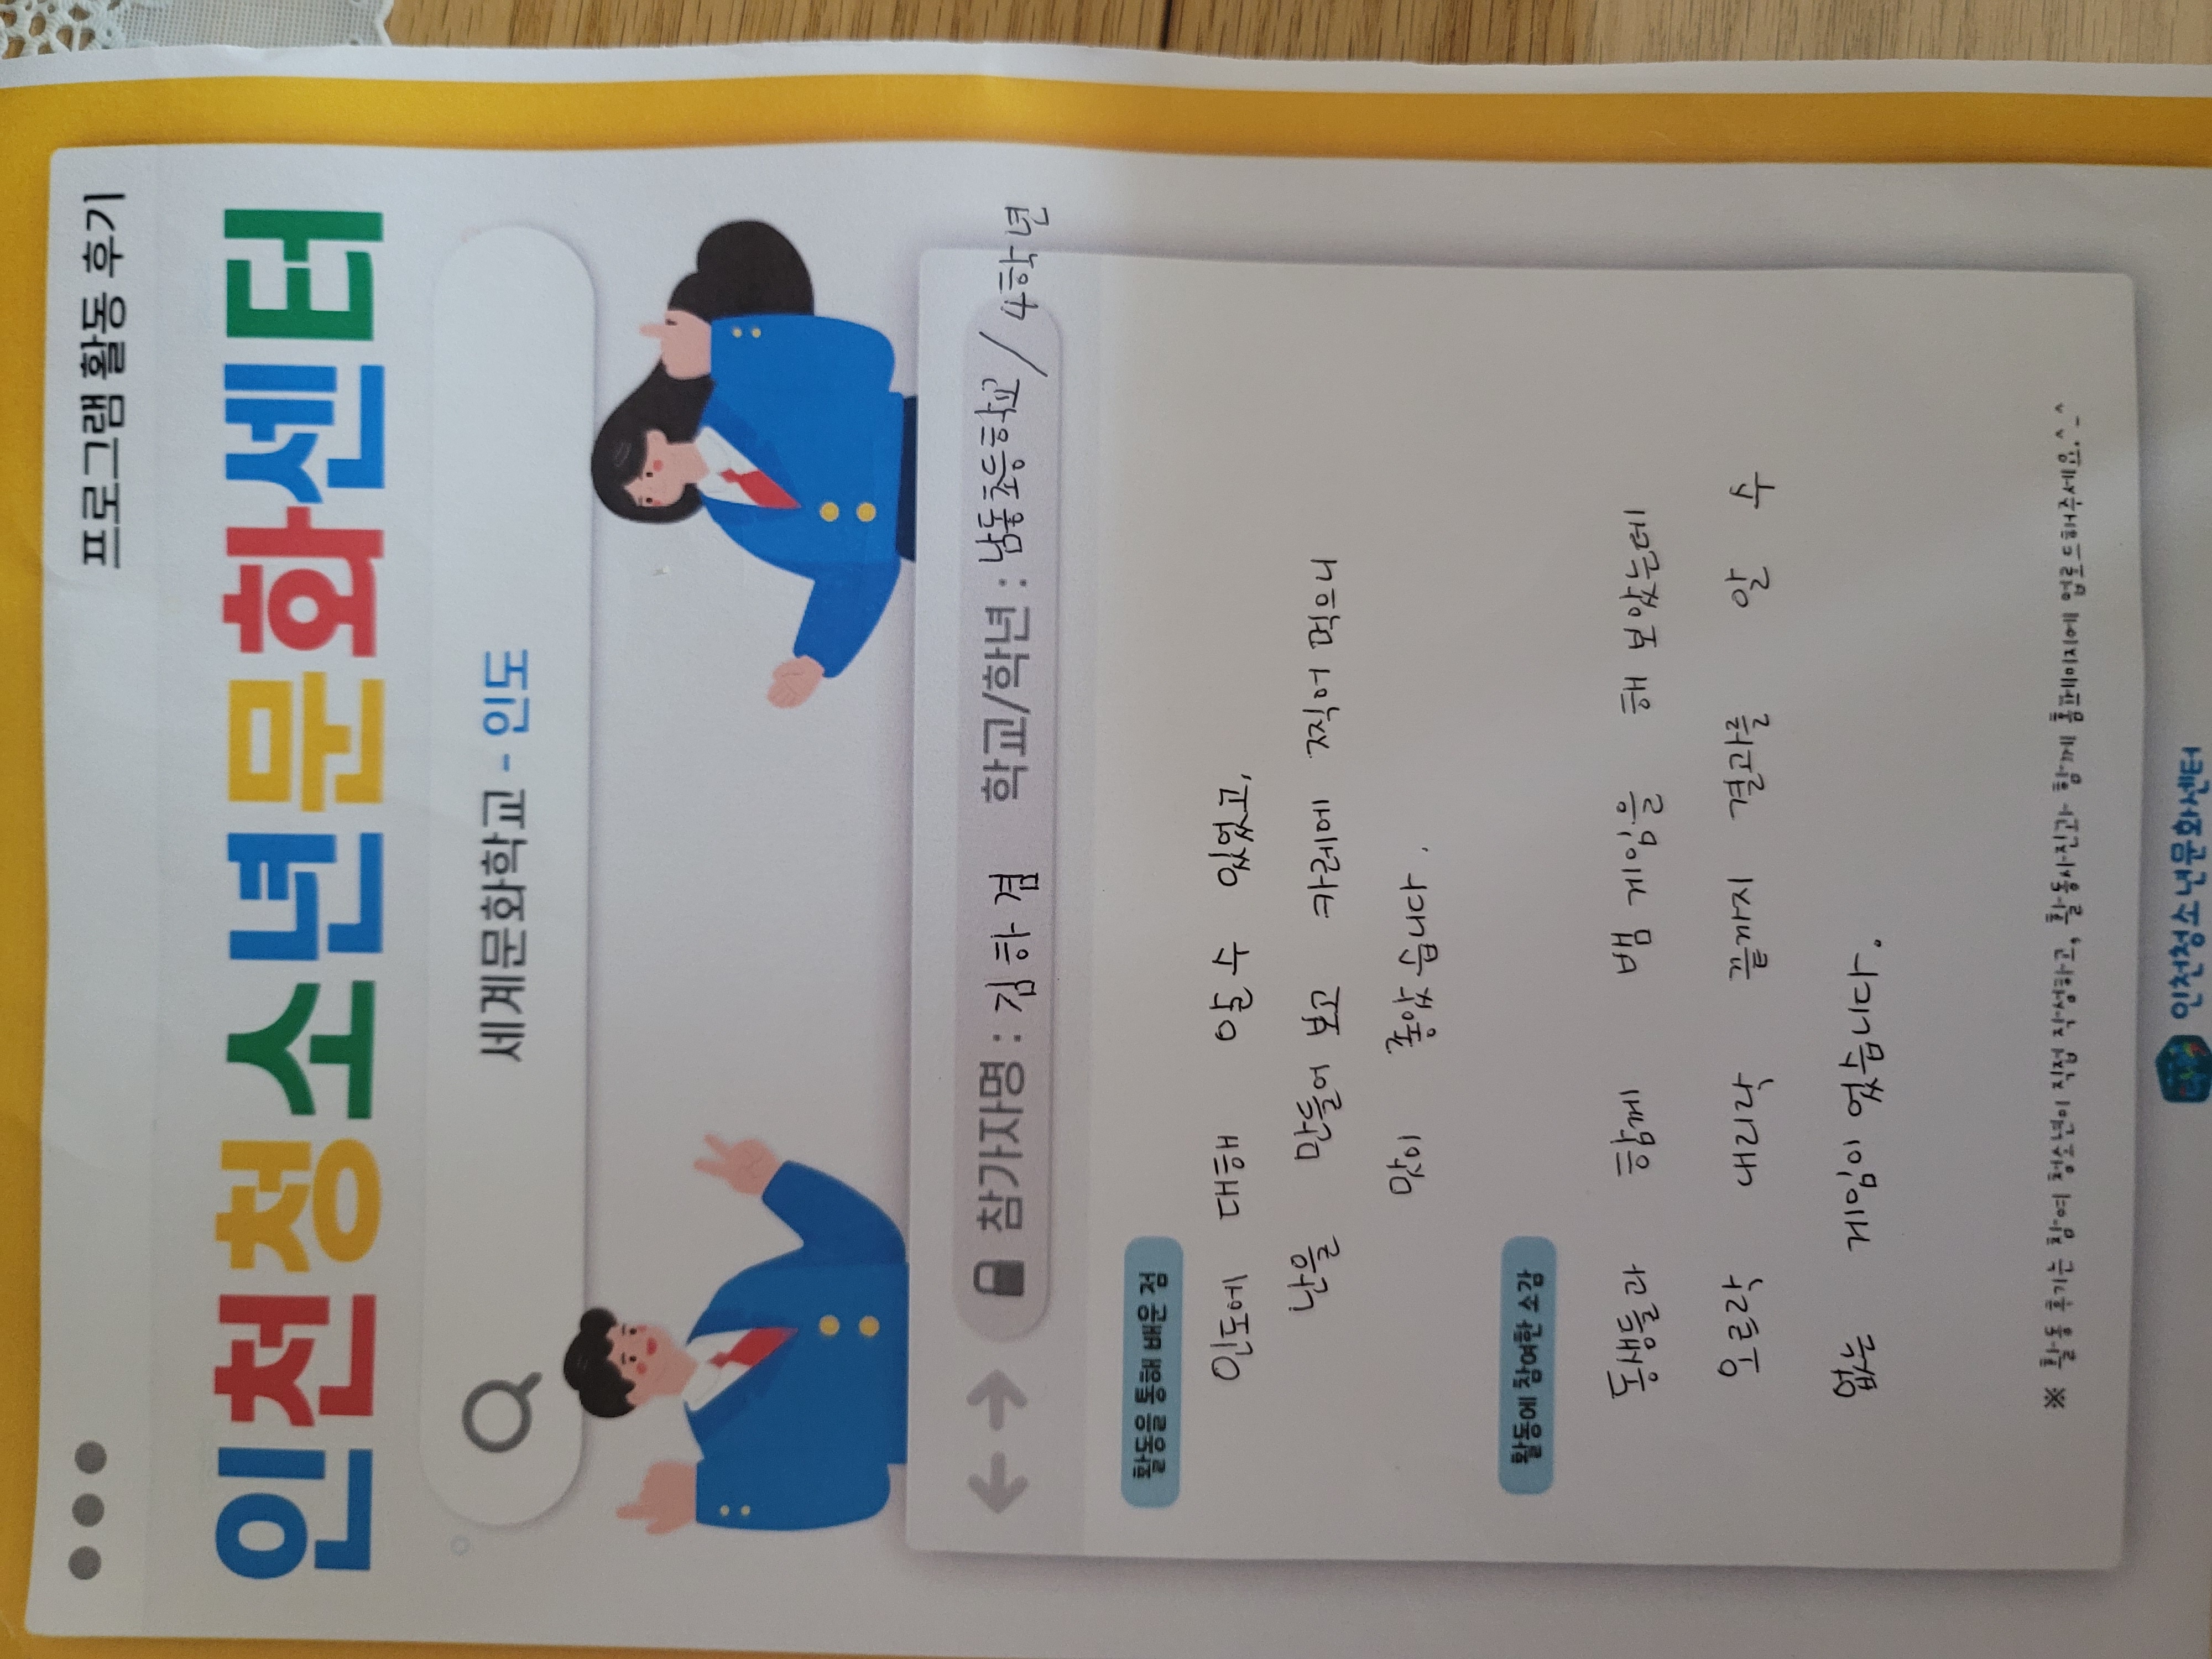 프로그램 활동 후기
인천청소년문화센터
세계문화학교 - 인도
참가자명 : 김하겸 학교/학년 : 남동초등학교 / 4학년
활동을 통해 배운 점
인도에 대해 알 수 있었고,
난를 만들어 보고 카레에 찍어 먹으니
맛이 좋았습니다.
활동에 참여한 소감
동생들과 윷 뱀 게임을 해 보았는데
오르락 내리락 끝까지 결과를 알 수
없는 게임이 었습니다.
※ 활동 후기는 참여 청소년이 직접 작성하고, 활동사진과 함께 홈페이지에 업로드해주세욤^-^
인천청소년문화센터